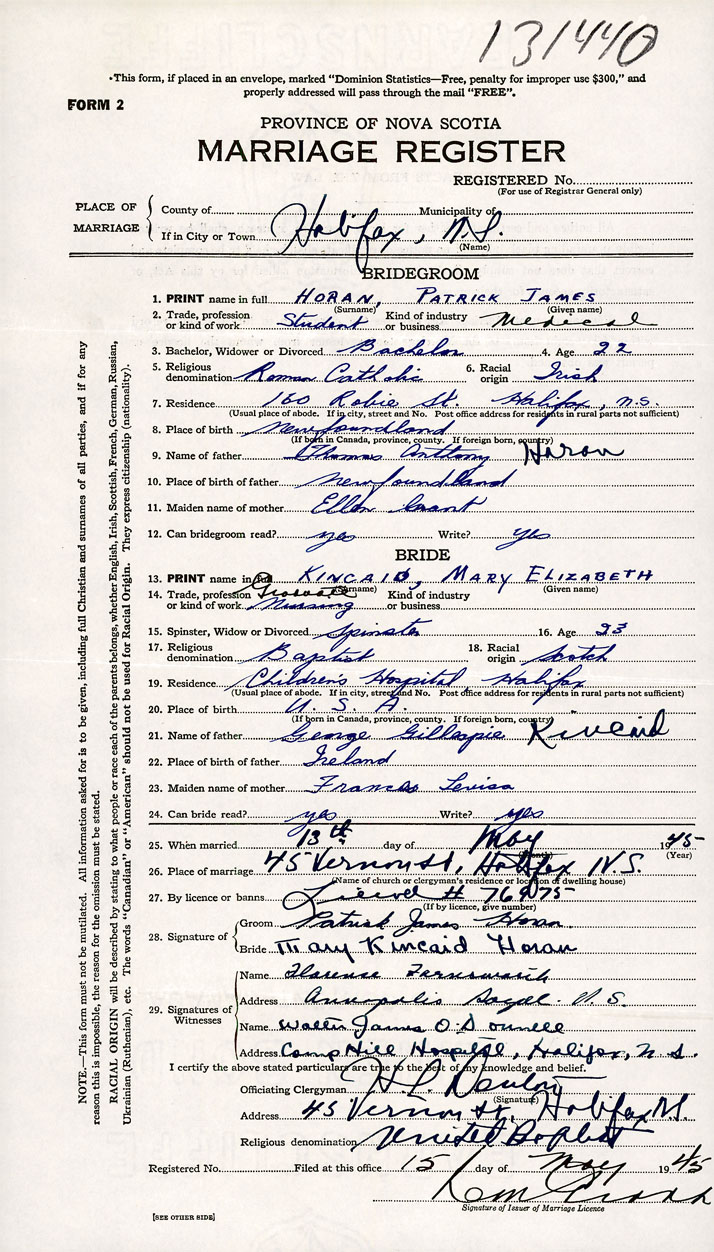 131440
•This form, if placed in an envelope, marked "Dominion Statistics—Free, penalty for improper use $300," and
properly addressed will pass through the mail "FREE".
FORM 2
PROVINCE OF NOVA SCOTIA
MARRIAGE REGISTER
REGISTERED No.
(For use of Registrar General only)
PLACE OF MARRIAGE
County of Municipality of
If in City or Town Halifax, N.S.
(Name)
BRIDEGROOM
1. PRINT name in full HORAN, PATRICK JAMES
(Surname) (Given name)
2. Trade, profession or kind of work Student Kind of industry or business Medical
3. Bachelor, Widower or Divorced Bachelor 4. Age 22
5. Religious denomination Roman Catholic 6. Racial origin Irish
7. Residence 160 Robie St. Halifax, N.S.
(Usual place of abode. If in city, street and No. Post office address for residents in rural parts not sufficient)
8. Place of birth Newfoundland
(If born in Canada, province, county. If foreign born, country)
9. Name of father Thomas Anthony Horan
10. Place of birth of father Newfoundland
11. Maiden name of mother Ellen Grant
12. Can bridegroom read? yes Write? yes
BRIDE
13. PRINT name in full KINCAID, MARY ELIZABETH
(Surname) (Given name)
14. Trade, profession or kind of work Graduate Nursing Kind of industry or business
15. Spinster, Widow or Divorced Spinster 16. Age 23
17. Religious denomination Baptist 18. Racial origin Scotch
19. Residence Children's Hospital, Halifax
(Usual place of abode. If in city, street and No. Post office address for residents in rural parts not sufficient)
20. Place of birth U. S. A.
(If born in Canada, province, county. If foreign born, country)
21. Name of father George Gillespie Kincaid
22. Place of birth of father Ireland
23. Maiden name of mother Frances
24. Can bride read? yes Write? yes
25. When married 13th day of May 1945
(Month) (Year)
26. Place of marriage 45 Vernon St, Halifax N.S.
(Name of church or clergyman's residence or location of dwelling house)
27. By licence or banns # 76975
(If by licence, give number)
28. Signature of
Groom Patrick James Horan
Bride Mary Kincaid Horan
29. Signatures of Witnesses
Name Florence Farnsworth
Address Annapolis Royal. N.S.
Name Walter James O'Donnell
Address Camp Hill Hospital, Halifax, N.S.
I certify the above stated particulars are true to the best of my knowledge and belief.
Officiating Clergyman
(Signature)
Address 45 Vernon St, Halifax
Religious denomination United Baptist
Registered No. Filed at this office 15 day of May 1945
Signature of Issuer of Marriage Licence
[SEE OTHER SIDE]
NOTE.—This form must not be mutilated. All information asked for is to be given, including full Christian and surnames of all parties, and if for any
reason this is impossible, the reason for the omission must be stated.
RACIAL ORIGIN will be described by stating to what people or race each of the parents belongs, whether English, Irish, Scottish, French, German, Russian,
Ukrainian (Ruthenian), etc. The words "Canadian" or "American" should not be used for Racial Origin. They express citizenship (nationality).